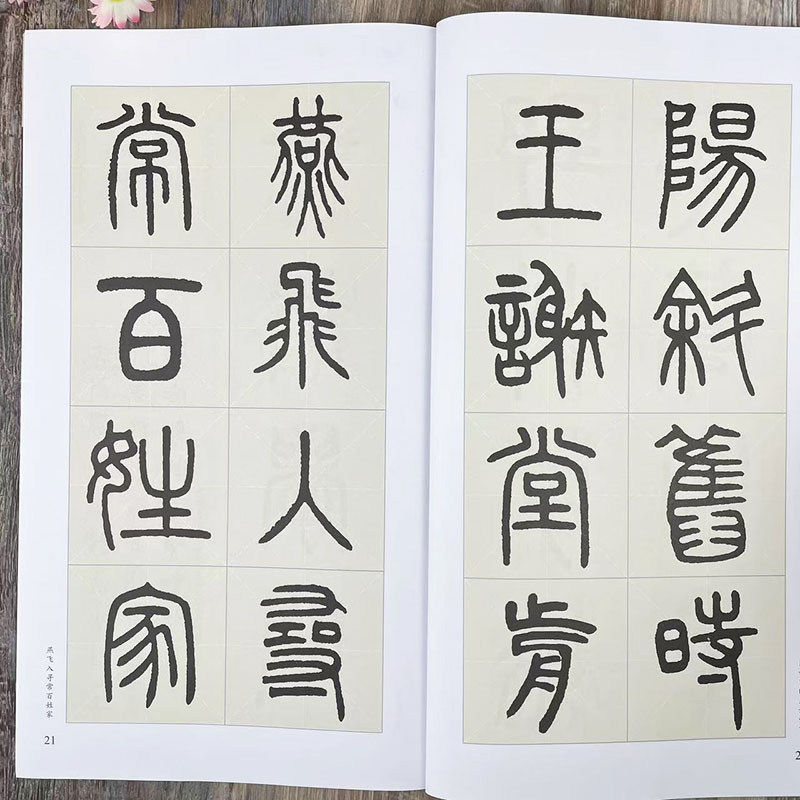 陽斜舊時
王謝堂前
燕飛入尋
常百姓家
燕飞入寻常百姓家
21